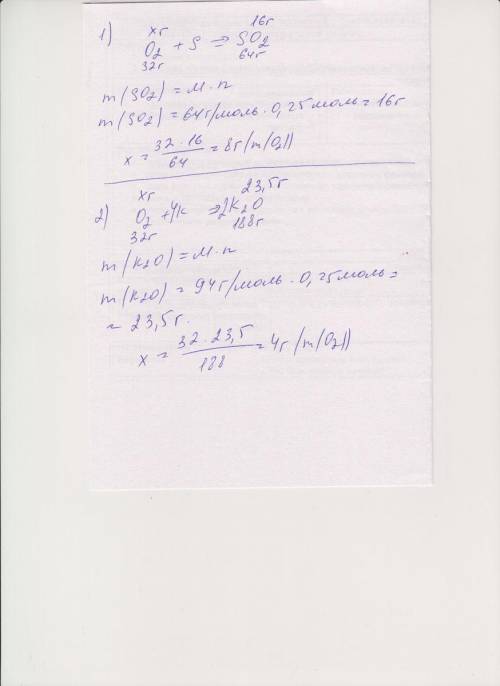 xг 16г
1) O2 + S ⇒ SO2
32г 64г
m(SO2) = M · n
m(SO2) = 64г/моль · 0,25моль = 16г
x = 32 · 16 / 64 = 8г (m(O2))
xг 23,5г
2) O2 + 4K ⇒ 2K2O
32г 188г
m(K2O) = M · n
m(K2O) = 94г/моль · 0,25моль =
= 23,5г.
x = 32 · 23,5 / 188 = 4г (m(O2))